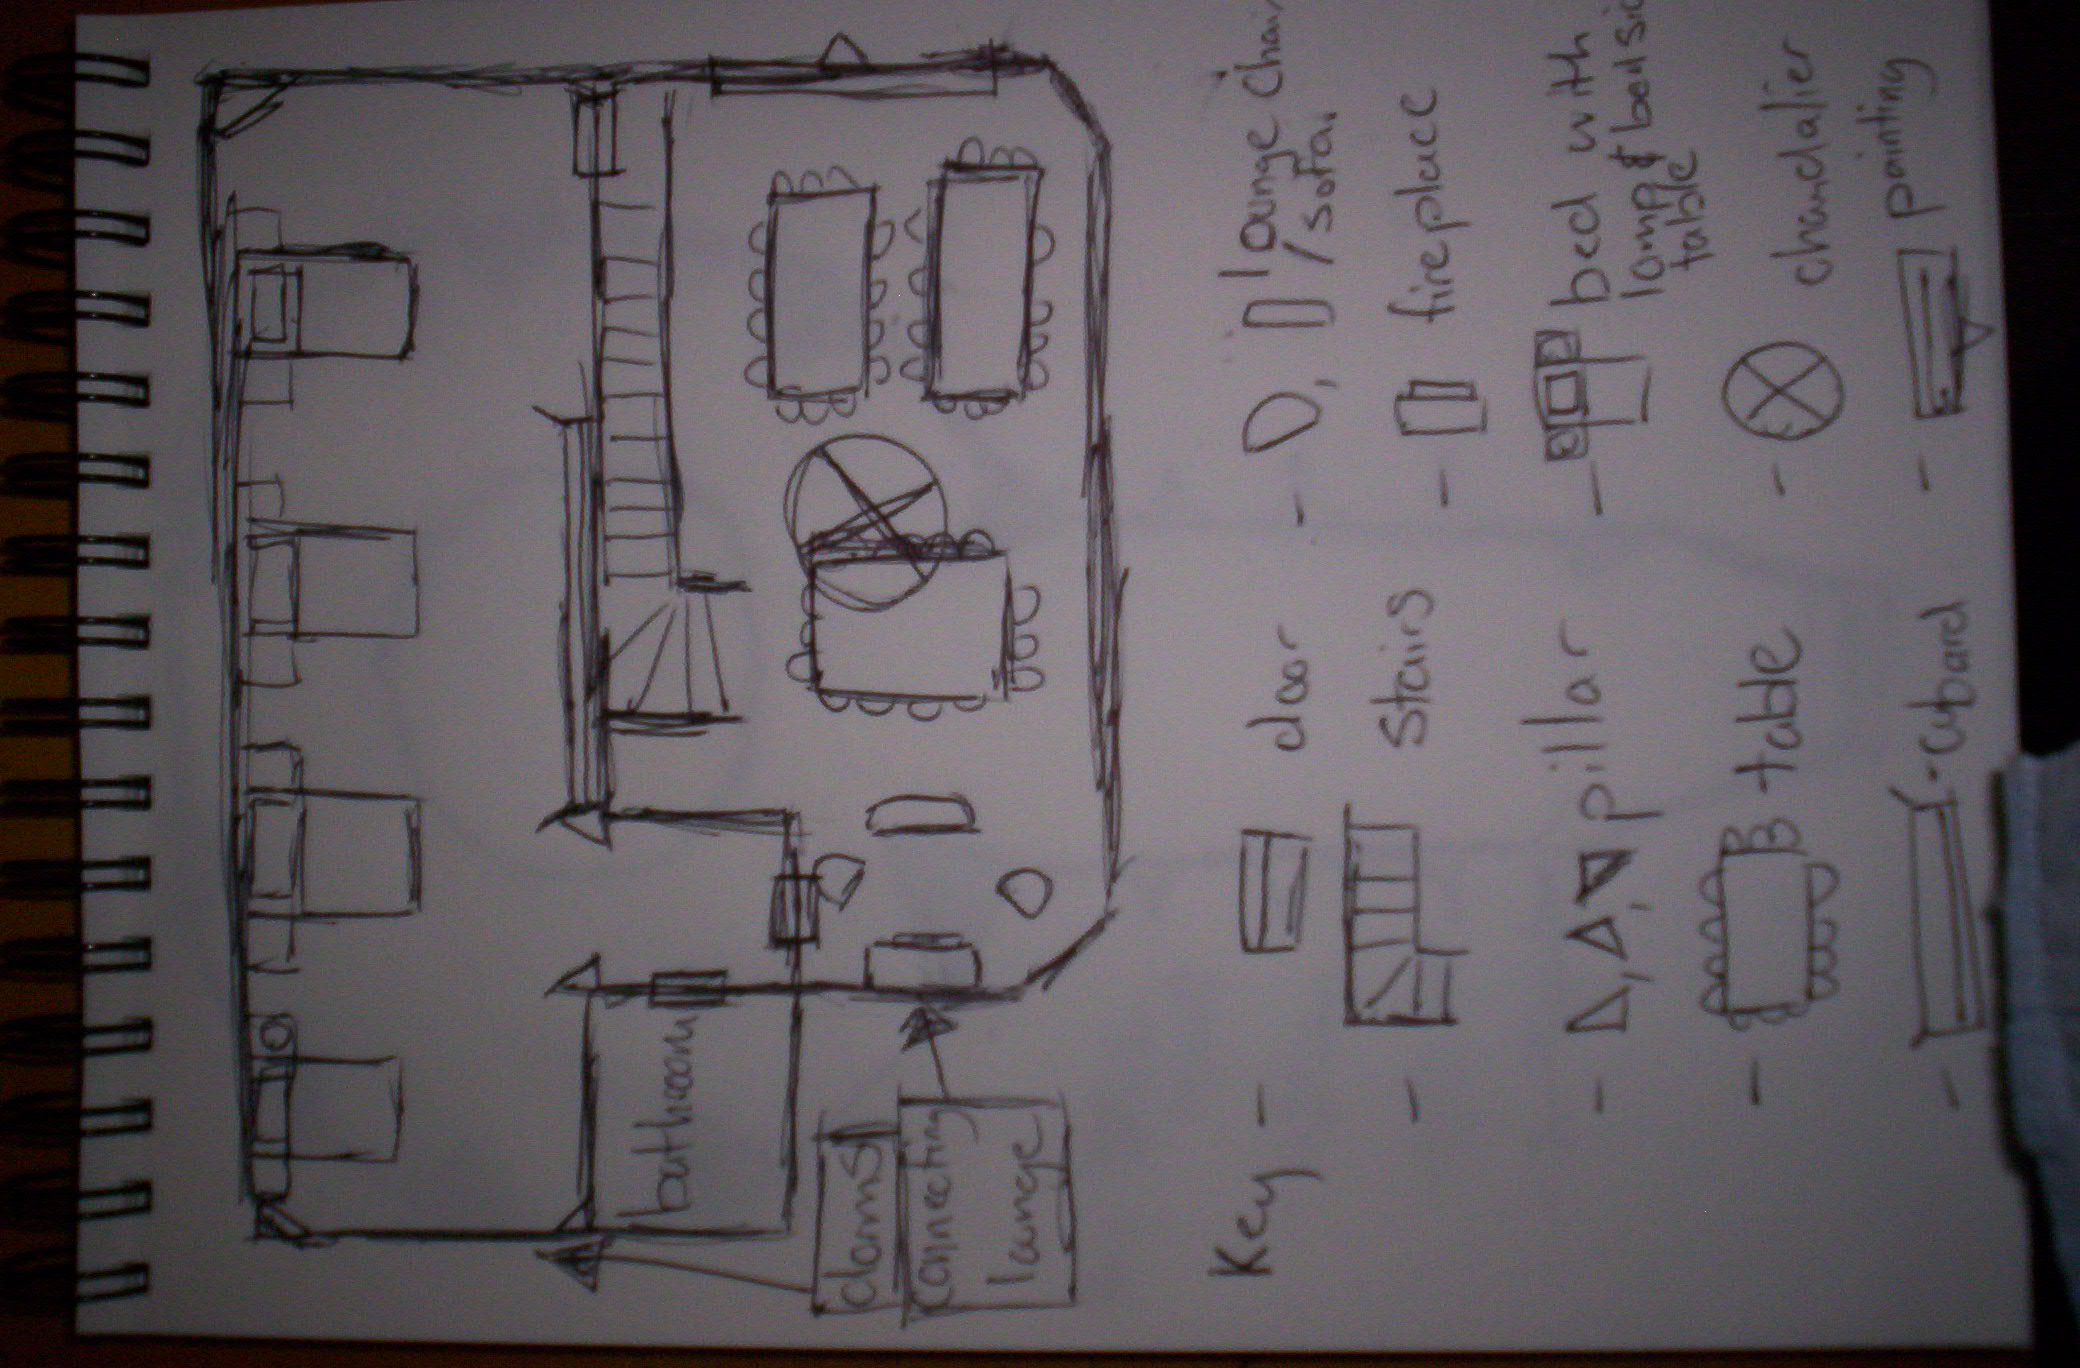 bathroom
dorms
connecting
lounge
Key - door
- stairs
- pillar
- table
- cuboard
- , / lounge chair
/ sofa
- fireplace
- bed with
lamp & bed
table
- chandalier
- painting